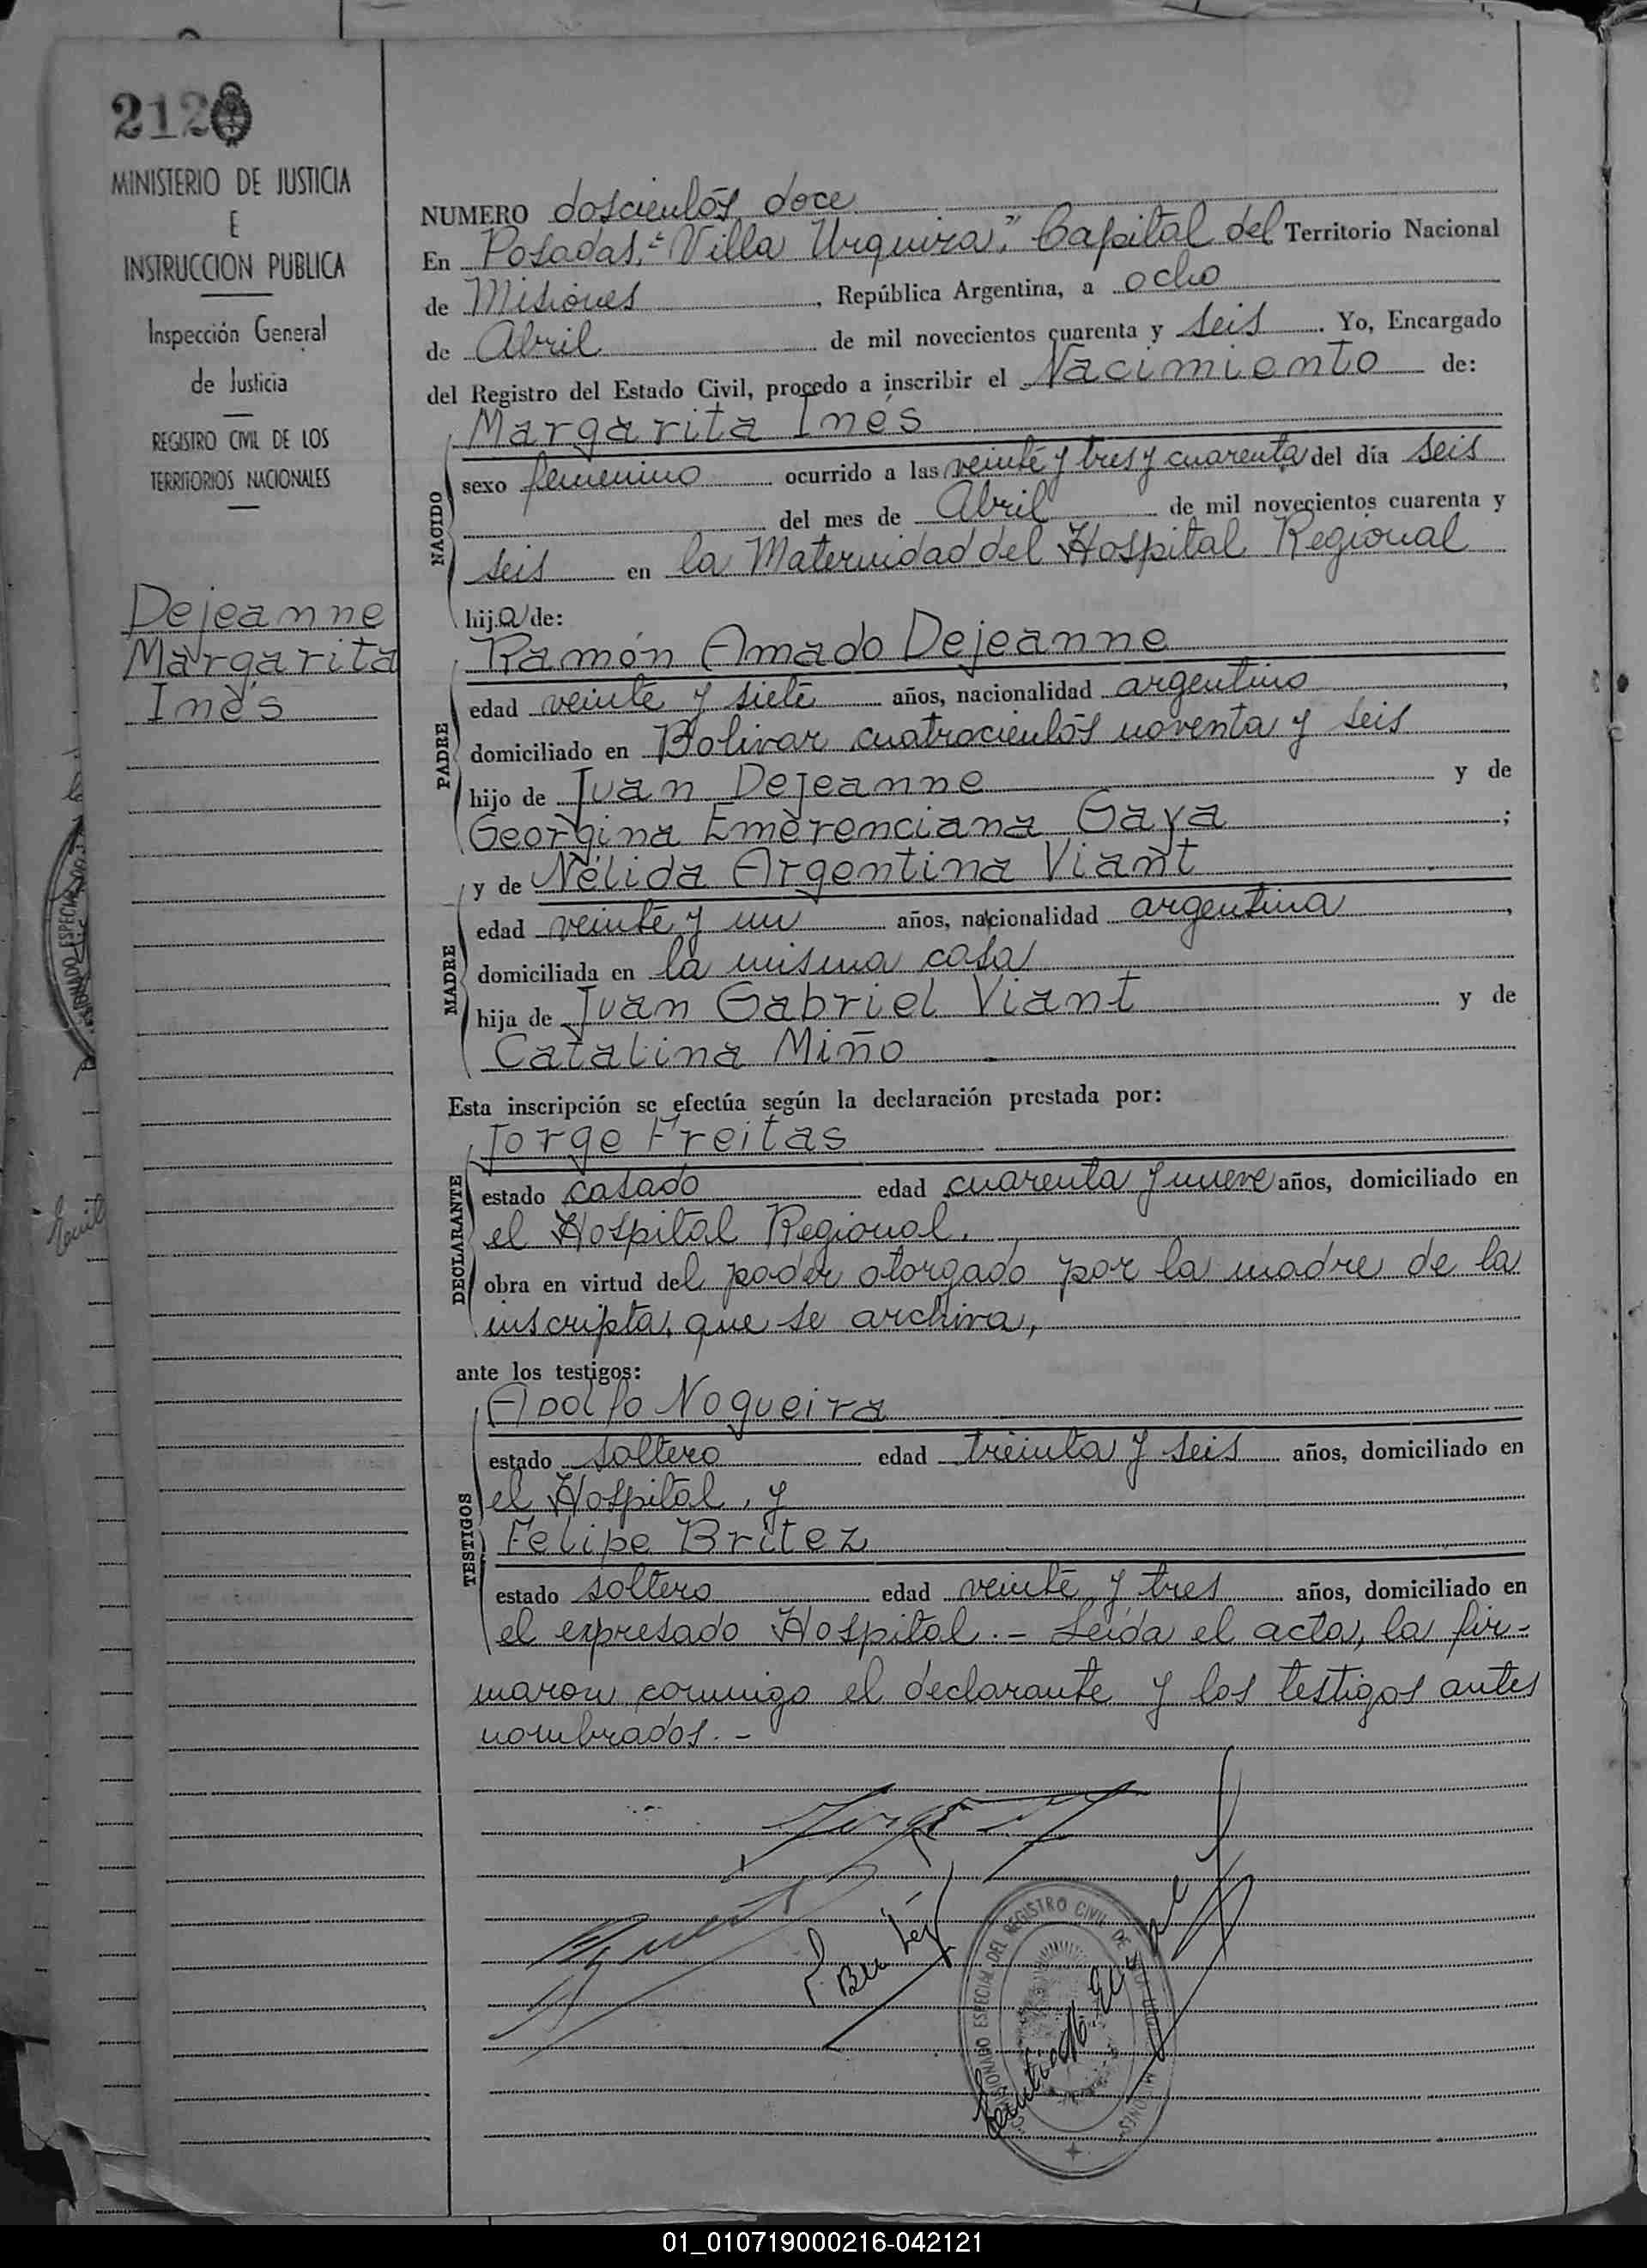 212
MINISTERIO DE JUSTICIA
E
INSTRUCCION PUBLICA
Inspección General
de Justicia
REGISTRO CIVIL DE LOS
TERRITORIOS NACIONALES
Dejeanne
Margarita
Inés
NUMERO doscientos doce
En Posadas, "Villa Urquiza", Capital del Territorio Nacional
de Misiones, República Argentina, a ocho
de Abril de mil novecientos cuarenta y seis. Yo, Encargado
del Registro del Estado Civil, procedo a inscribir el Nacimiento de:
NACIDO
Margarita Inés
sexo femenino ocurrido a las veinte y tres y cuarenta del día seis
del mes de Abril de mil novecientos cuarenta y
seis en la Maternidad del Hospital Regional
hija de:
PADRE
Ramón Amado Dejeanne
edad veinte y siete años, nacionalidad argentino,
domiciliado en Bolivar cuatrocientos noventa y seis
hijo de Juan Dejeanne y de
Georgina Emerenciana Gaya;
MADRE
y de Nélida Argentina Viant
edad veinte y un años, nacionalidad argentina,
domiciliada en la misma casa
hija de Juan Gabriel Viant y de
Catalina Miño
Esta inscripción se efectúa según la declaración prestada por:
DECLARANTE
Jorge Freitas
estado casado edad cuarenta y nueve años, domiciliado en
el Hospital Regional.
obra en virtud del poder otorgado por la madre de la
inscripta, que se archiva,
ante los testigos:
TESTIGOS
Adolfo Nogueira
estado soltero edad treinta y seis años, domiciliado en
el Hospital, y
Felipe Britez
estado soltero edad veinte y tres años, domiciliado en
el expresado Hospital.- Leída el acta, la fir-
maron conmigo el declarante y los testigos antes
nombrados.-
ESPECIAL DEL REGISTRO CIVIL DE
MISIONES
01_010719000216-042121